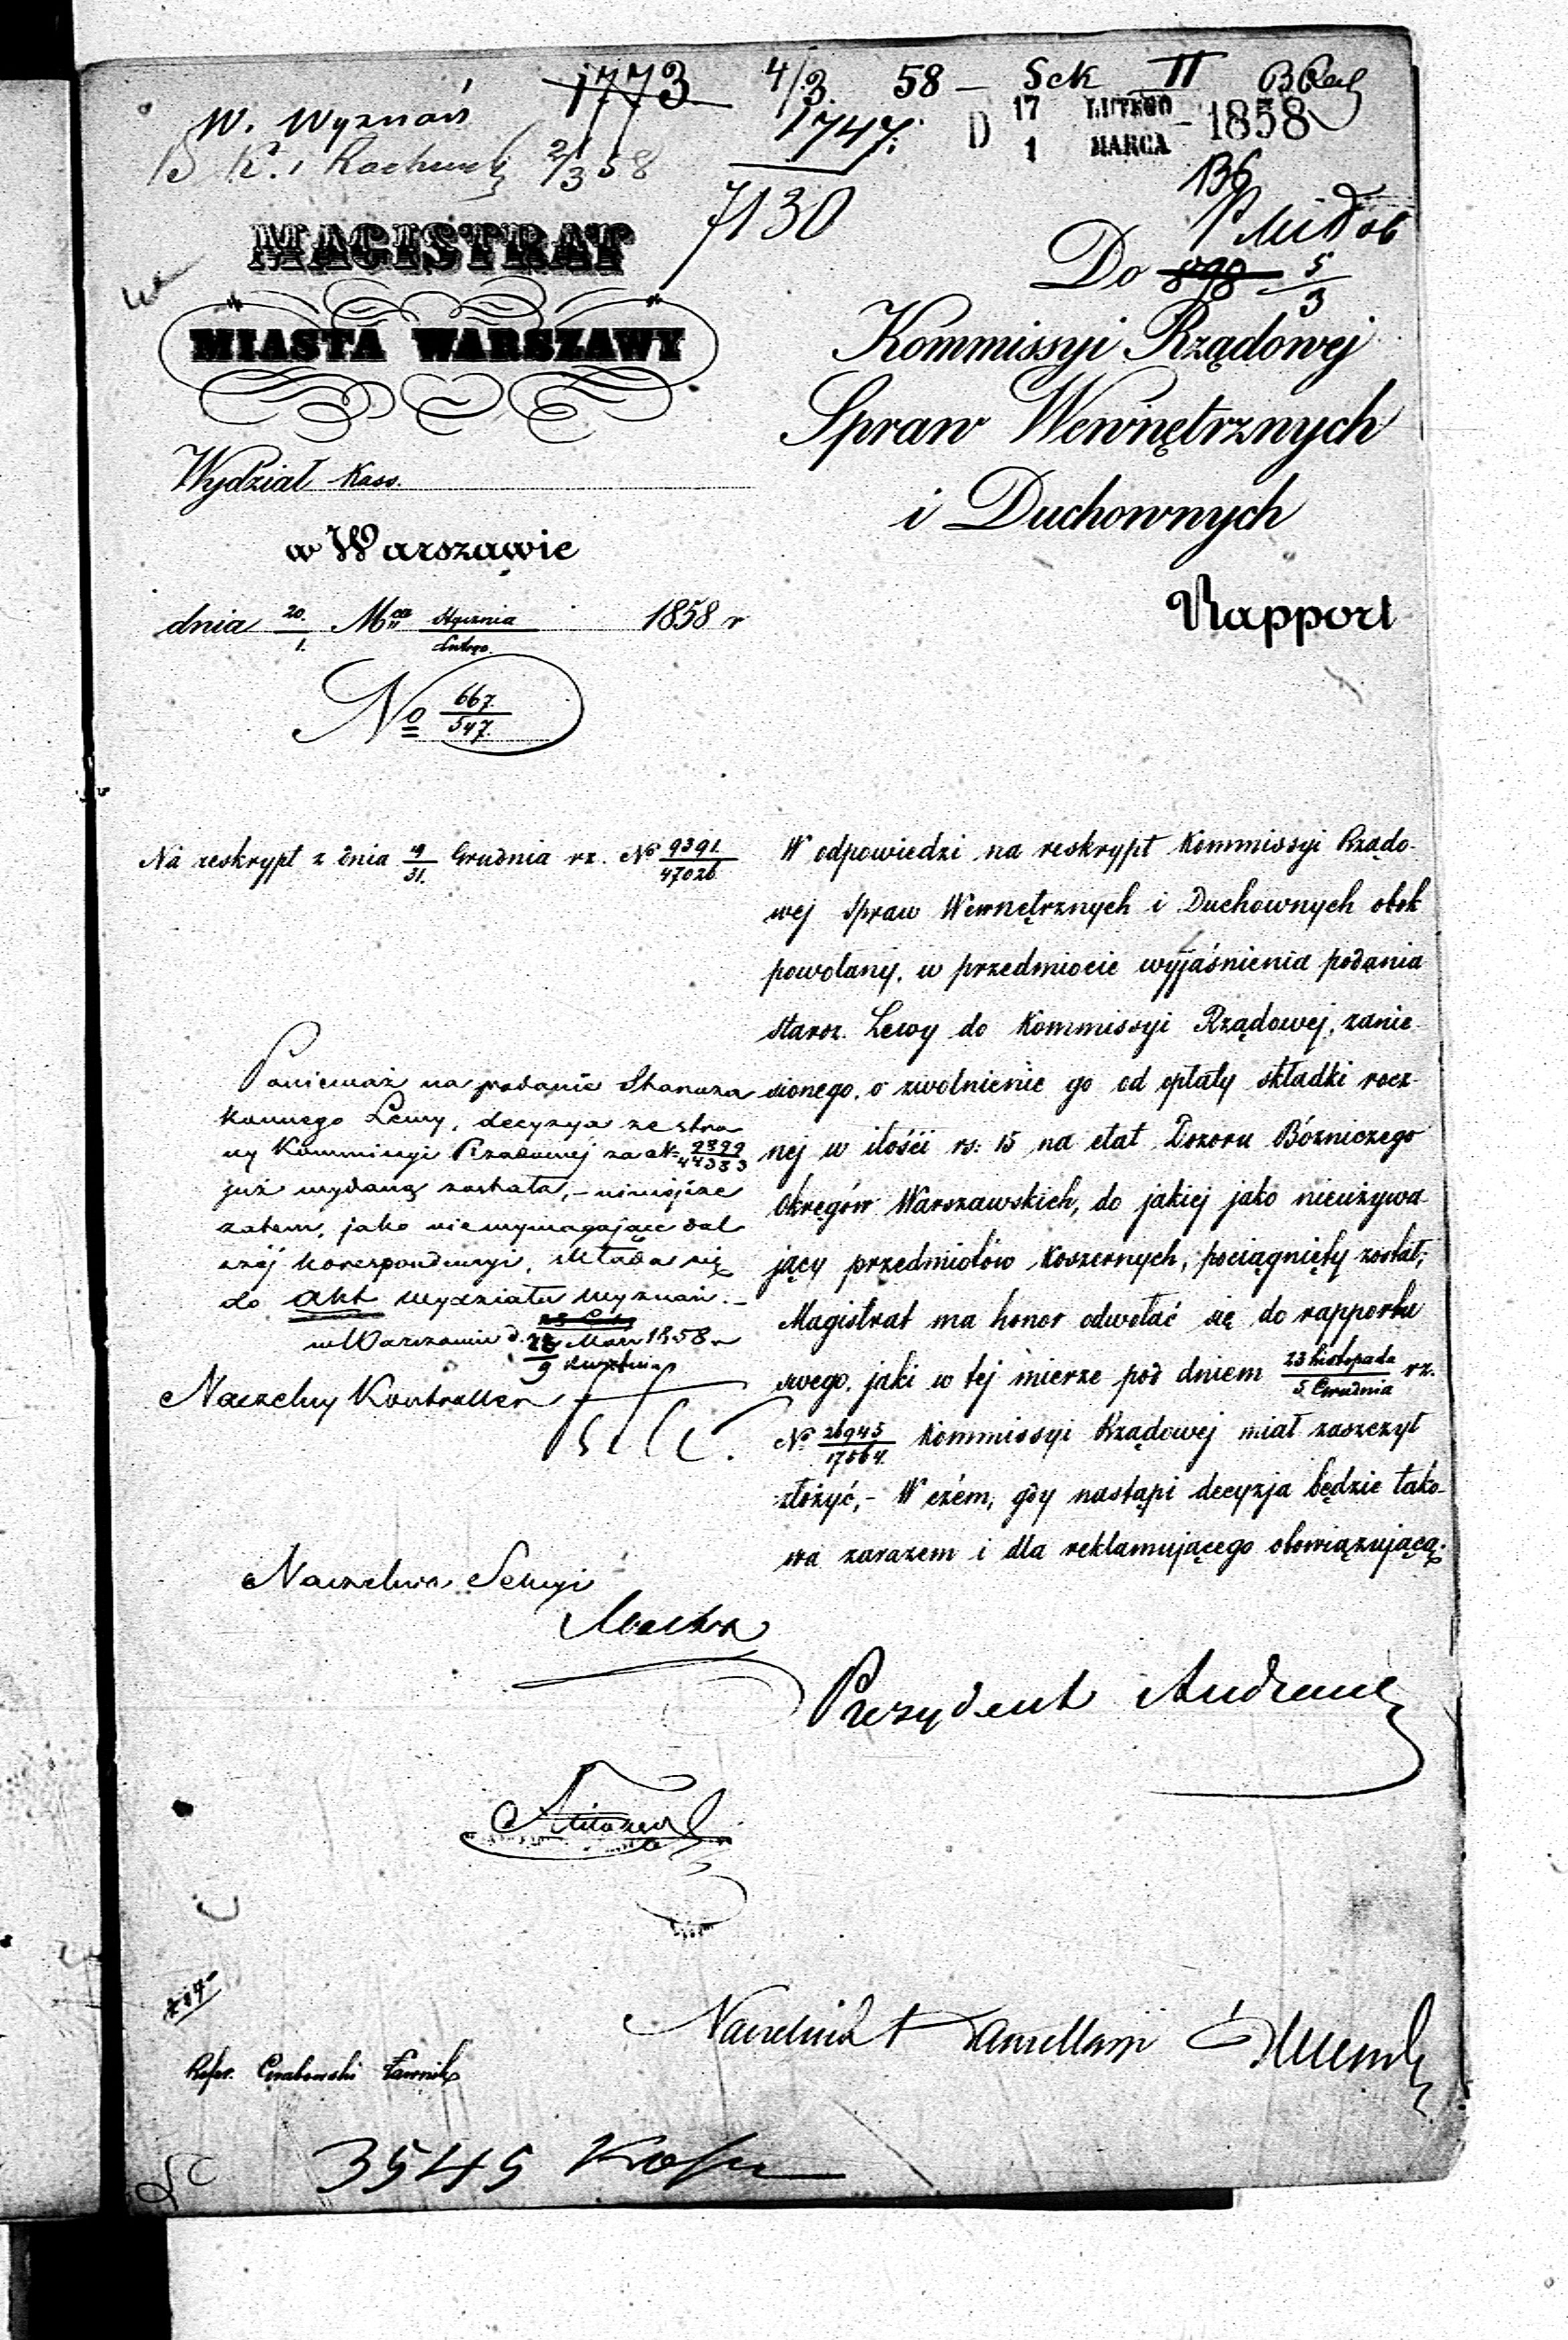 1773 4/3 58 — Sek II
W. Wyznań 1747. D 17 LUTEGO 1 MARCA 1858
B K. i Rachun 2/3 58
7130 136
MAGISTRAT
MIASTA WARSZAWY
Wydział Kass.
w Warszawie
dnia 20./1. Mca Stycznia/Lutego. 1858 r
No 667./547.
Do 5/3
Kommissyi Rządowej
Spraw Wewnętrznych
i Duchownych
Rapport
Na reskrypt z dnia 19/31. Grudnia rz. No 9391./47026
W odpowiedzi na reskrypt Kommissyi Rządo-
wej Spraw Wewnętrznych i Duchownych obok
powołany, w przedmiocie wyjaśnienia podania
staroz. Lewy do Kommissyi Rządowej, zanie-
sionego, o zwolnienie go od opłaty składki rocz-
nej w ilości rs: 15 na etat Dozoru Bózniczego
Okręgów Warszawskich, do jakiej jako nieużywa-
jący przedmiotów koszernych, pociągnięty został,
Magistrat ma honor odwołać się do rapportu
swego, jaki w tej mierze pod dniem 23 Listopada/5. Grudnia rz.
No 26945/17564. Kommissyi Rządowej miał zaszczyt
złożyć,- W czém, gdy nastąpi decyzja będzie tako-
wa zarazem i dla reklamującego obowiązującą.
Ponieważ na podanie Staroza
konnego Lewy, decyzya ze stro
ny Kommissyi Rządowej za No
już wydaną została,- niniejsze
zatem, jako niewymagające dal
széj korespondencyi, składa się
do akt wydziału wyznań.-
w Warszawie d. 28 Marc/9 Kwietnia 1858 r
Naczelny Kontroller
Naczelnik Sekcyi
Prezydent Andrault
Naczelnik Kancellaryi
Refer. Grabowski Ławnik
3545